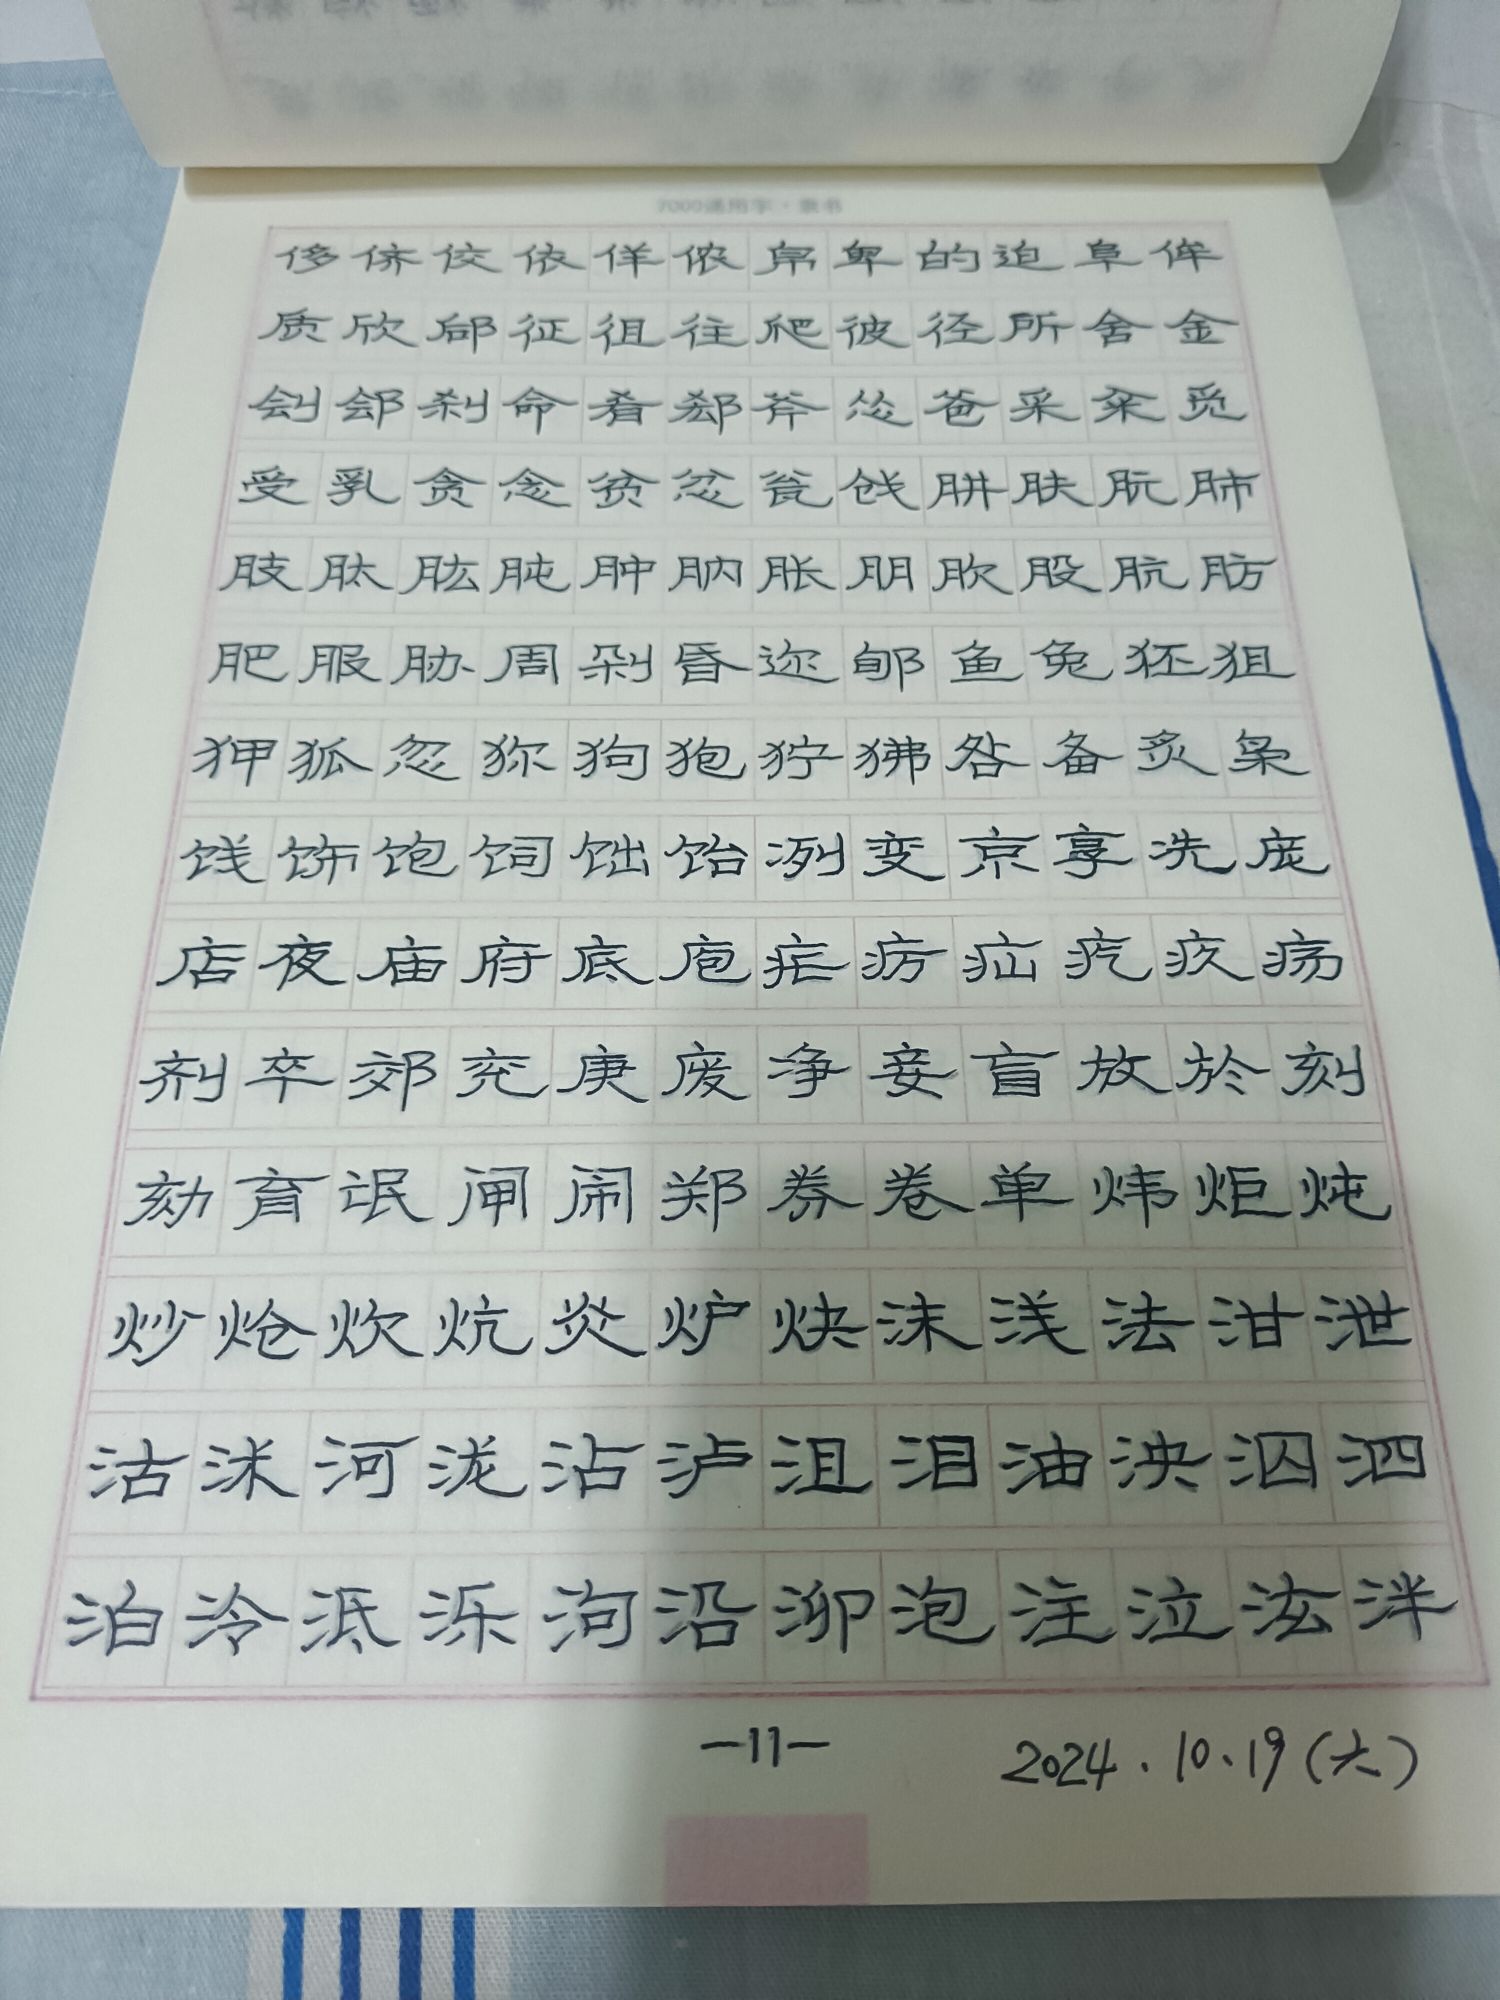 7000通用字·隶书
侈侪佼依佯侬帛卑的迫阜侔
质欣郈征徂往爬彼径所舍金
刽郐刹命肴郄斧怂爸采籴觅
受乳贪念贫忿瓮戗肼肤朊肺
肢肽肱肫肿肭胀朋肷股肮肪
肥服胁周剁昏迩郇鱼兔狉狙
狎狐忽狝狗狍狞狒咎备炙枭
饯饰饱饲饳饴冽变京享冼庞
店夜庙府底庖疟疠疝疙疚疡
剂卒郊兖庚废净妾盲放於刻
劾育氓闸闹郑券卷单炜炬炖
炒炝炊炕炎炉炔沫浅法泔泄
沽沭河泷沾泸沮泪油泱泅泗
泊泠泜泺泃沿泖泡注泣泫泮
—11—
2024.10.19(六)